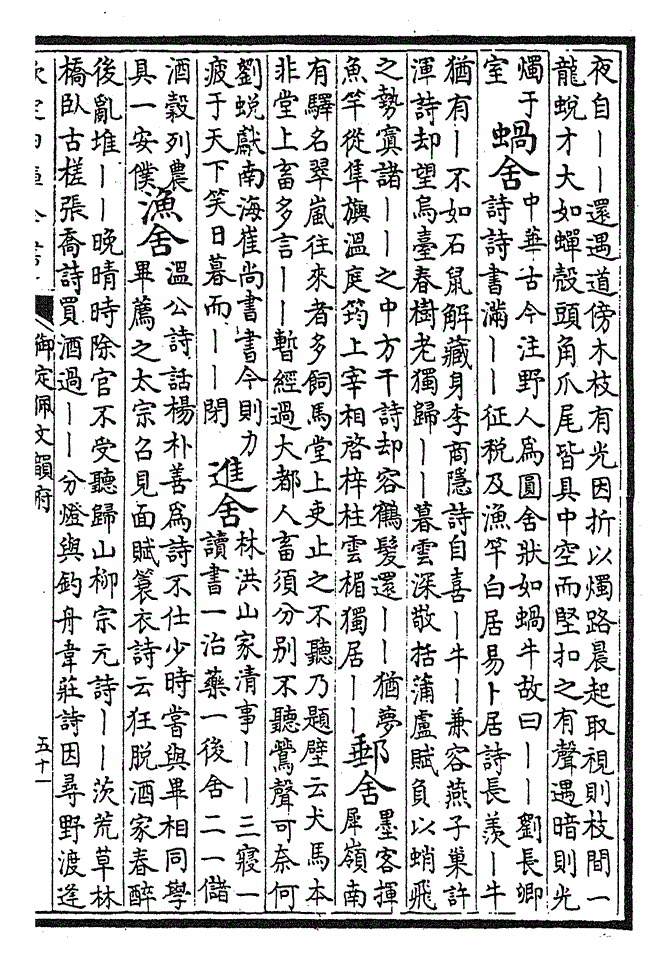 夜自｜｜還遇道傍木枝有光因折以燭路晨起取視則枝間一
龍蛻才大如蟬殼頭角爪尾皆具中空而堅扣之有聲遇暗則光
燭于
室
蝸舍
中華古今注野人為圓舍狀如蝸牛故曰｜｜劉長卿
詩詩書滿｜｜征税及漁竿白居易卜居詩長羨｜牛
猶有｜不如石鼠解藏身李商隱詩自喜｜牛｜兼容燕子巢許
渾詩却望烏臺春樹老獨歸｜｜暮雲深敬括蒲盧賦負以蛸飛
之勢寘諸｜｜之中方干詩却容鶴髮還｜｜猶夢
魚竿從隼旟溫庭筠上宰相啓梓柱雲楣獨居｜｜
郵舍
墨客揮
犀嶺南
有驛名翠嵐往來者多飼馬堂上吏止之不聽乃題壁云犬馬本
非堂上畜多言｜｜暫經過大都人畜須分别不聽鶯聲可奈何
劉蛻獻南海崔尚書書今則力
疲于天下笑日暮而｜｜閉
進舍
林洪山家清事｜｜三寢一
讀書一治藥一後舍二一儲
酒穀列農
具一安僕
漁舍
溫公詩話楊朴善為詩不仕少時嘗與畢相同學
畢薦之太宗召見面賦簑衣詩云狂脱酒家春醉
後亂堆｜｜晚晴時除官不受聽歸山柳宗元詩｜｜茨荒草林
橋臥古槎張喬詩買酒過｜｜分燈與釣舟韋莊詩因尋野渡逢
御定佩文韻府
五十一